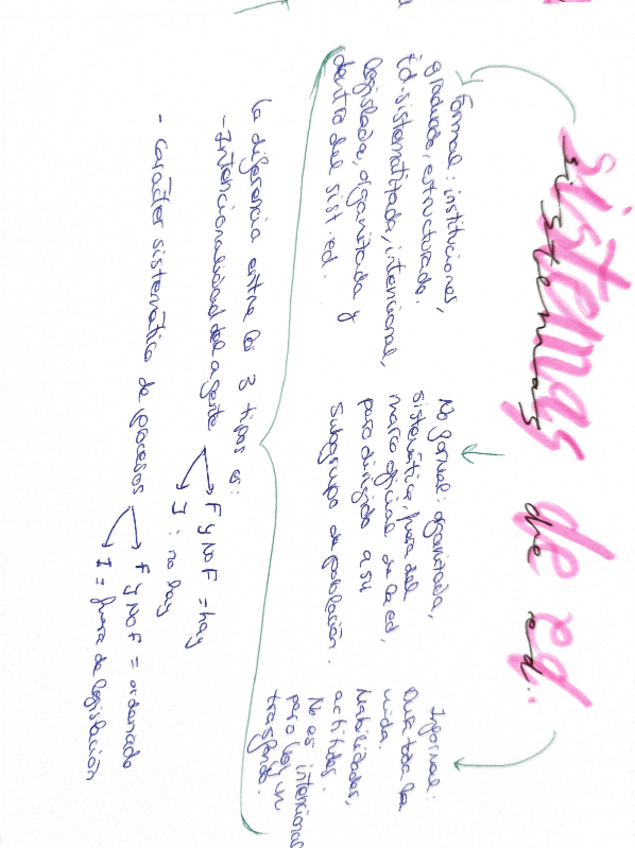 sistemas de ed.
Formal: instituciones,
graduado, estructurado.
Ed. sistematizada, intencional,
legislada, organizada y
dentro del sist. ed.
No formal: organizada,
sistemática, fuera del
marco oficial de la ed,
para dirigido a su
subgrupo de población.
Informal:
Dura toda la
vida.
Habilidades,
actitudes.
No es intencional
pero hay un
trasfondo.
La diferencia entre los 3 tipos es:
- Intencionalidad del agente
F y No F = hay
I : no hay
- Carácter sistemático de procesos
F y No F = ordenado
I = fuera de legislación